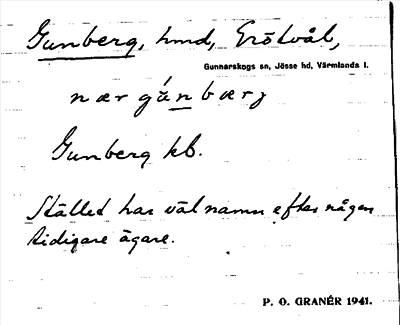 Gunberg, hmd, Erótvål,
Gunnarskogs sn, Jösse hd, Värmlands l.
nær gánbærj
Gunberg kb.
Stället har väl namn efter någon
tidigare ägare.
P. O. GRANÉR 1941.